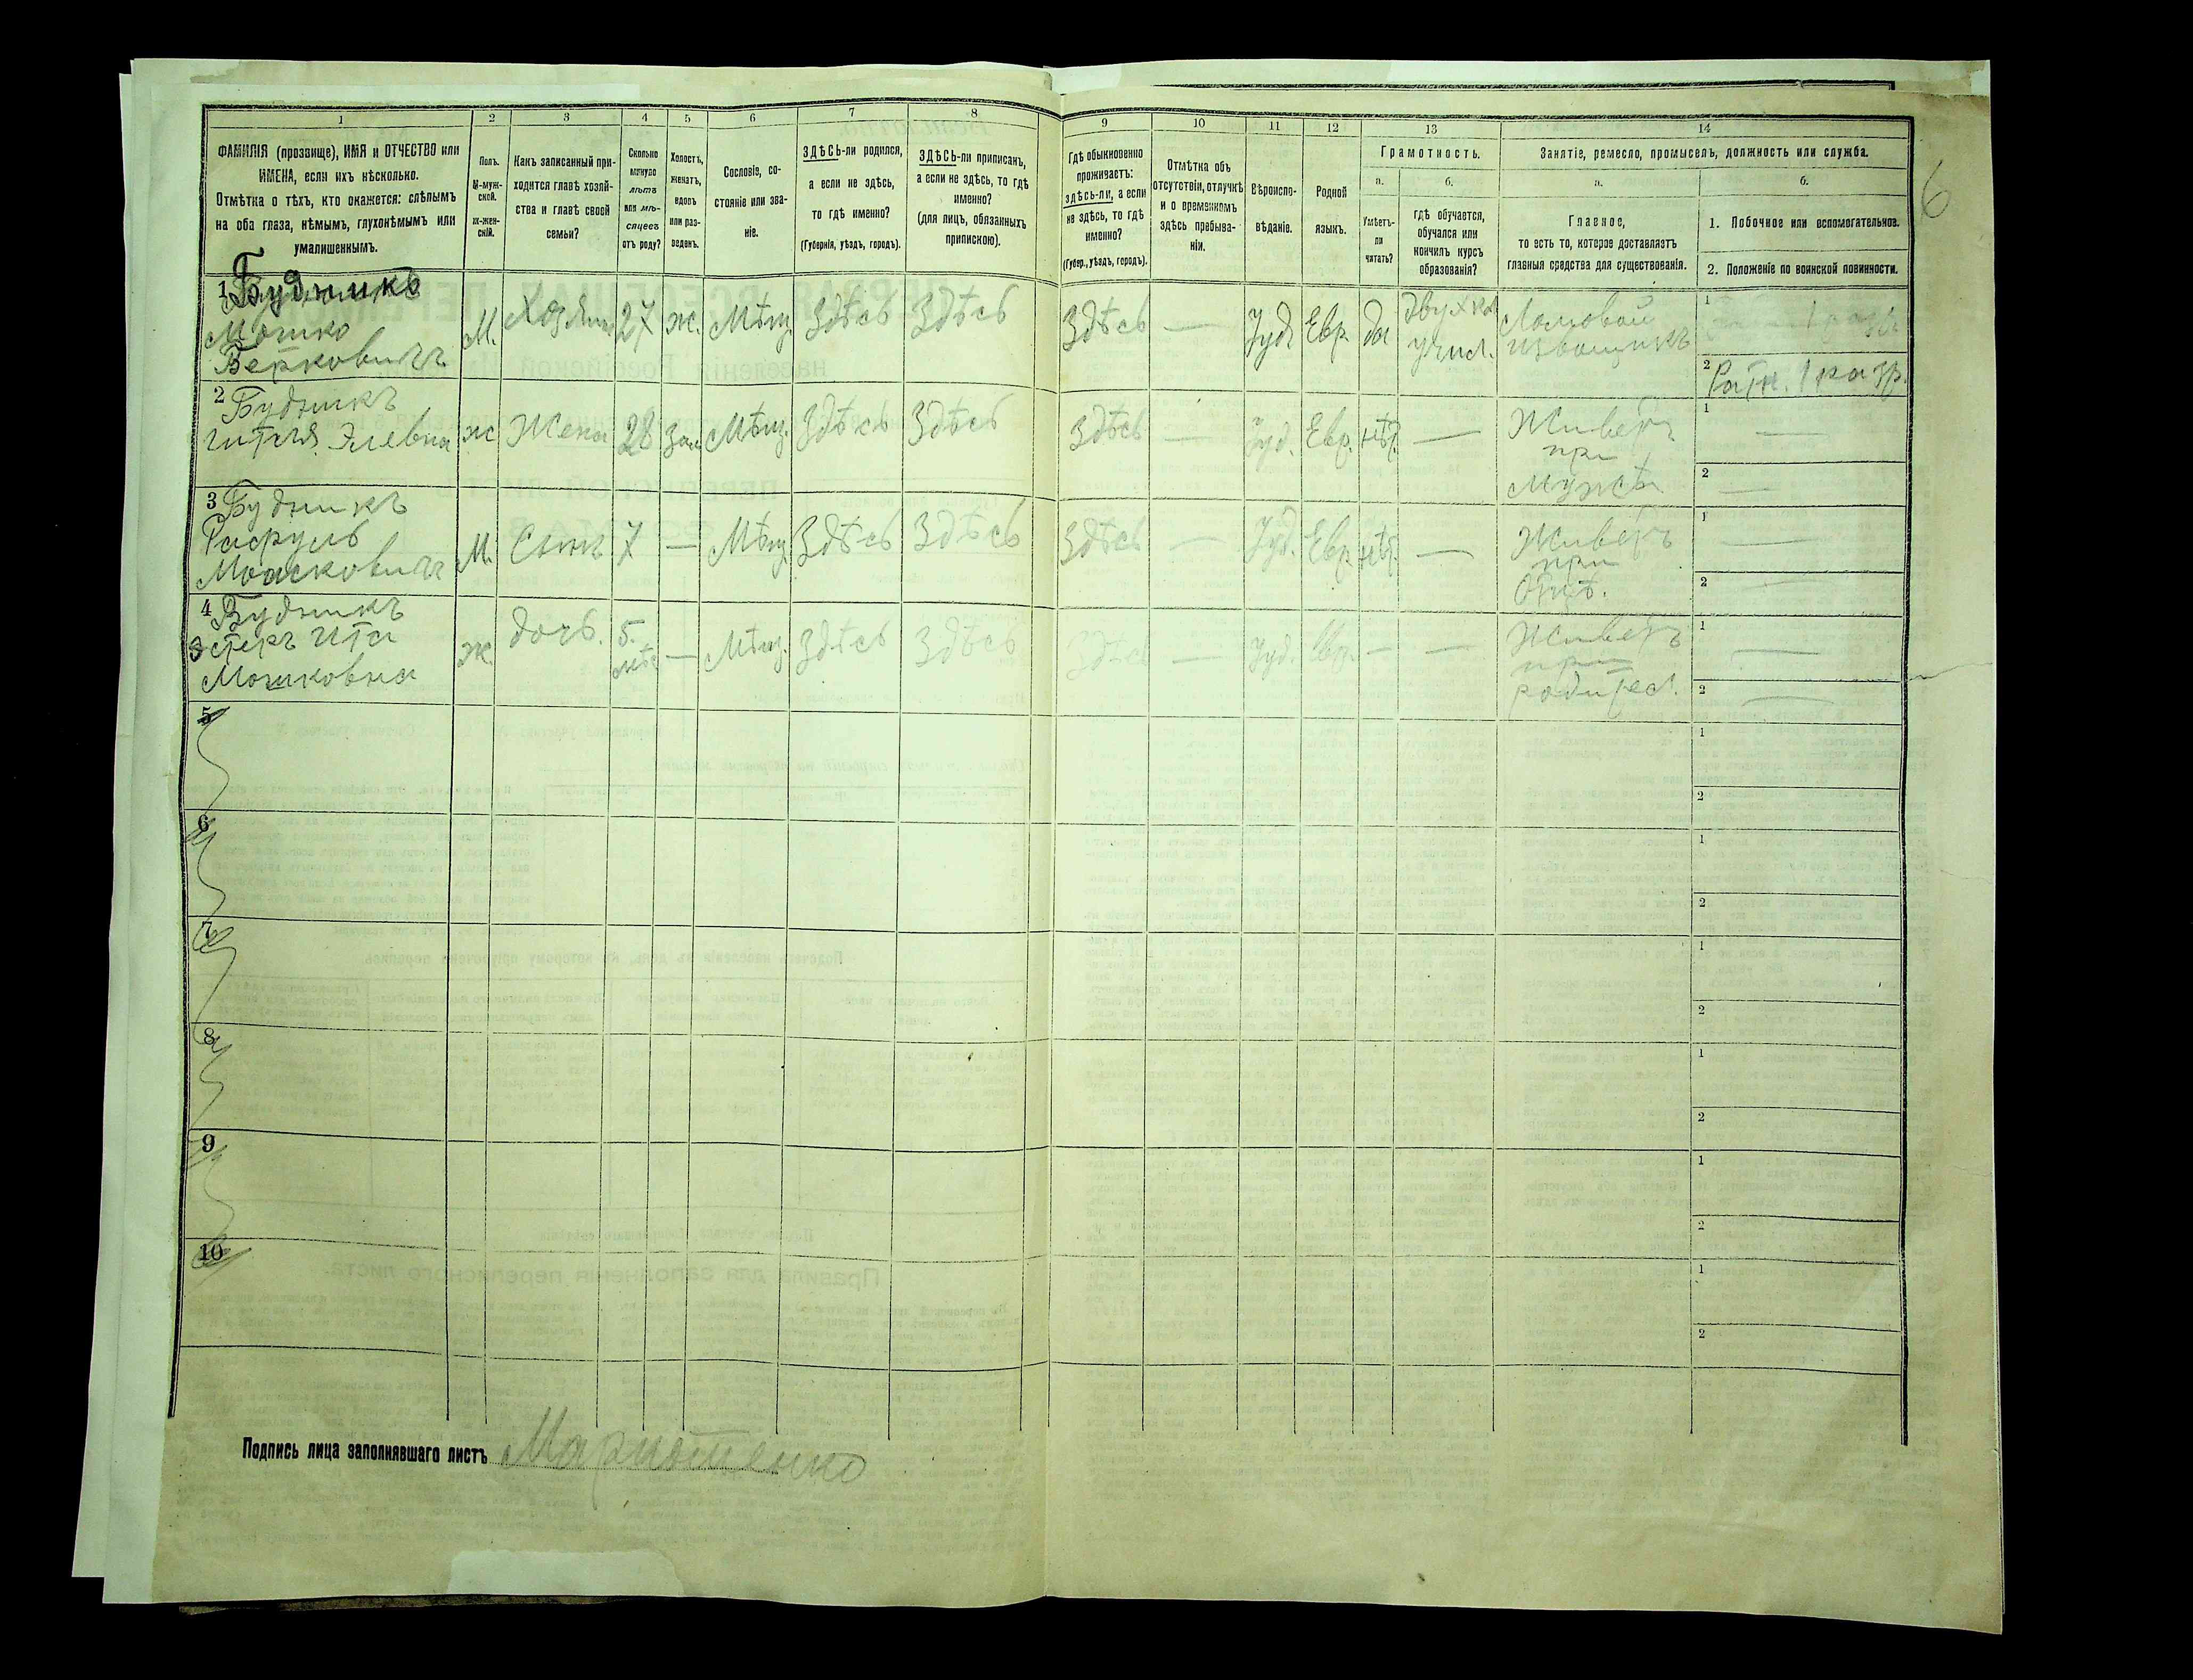 1 2 3 4 5 6 7 8 9 10 11 12 13 14
ФАМИЛІЯ (прозвище), ИМЯ и ОТЧЕСТВО или
ИМЕНА, если ихъ нѣсколько.
Отмѣтка о тѣхъ, кто окажется: слѣпымъ
на оба глаза, нѣмымъ, глухонѣмымъ или
умалишеннымъ.
Полъ.
М-муж-
ской.
ж-жен-
скій.
Какъ записанный при-
ходится главѣ хозяй-
ства и главѣ своей
семьи?
Сколько
минуло
лѣтъ
или мѣ-
сяцевъ
отъ роду?
Холостъ,
женатъ,
вдовъ
или раз-
веденъ.
Сословіе, со-
стояніе или зва-
ніе.
ЗДѢСЬ-ли родился,
а если не здѣсь,
то гдѣ именно?
(Губернія, уѣздъ, городъ).
ЗДѢСЬ-ли приписанъ,
а если не здѣсь, то гдѣ
именно?
(для лицъ, обязанныхъ
припискою).
Гдѣ обыкновенно
проживаетъ:
здѣсь-ли, а если
не здѣсь, то гдѣ
именно?
(Губер., уѣздъ, городъ).
Отмѣтка объ
отсутствіи, отлучкѣ
и о временномъ
здѣсь пребыва-
ніи.
Вѣроиспо-
вѣданіе.
Родной
языкъ.
Грамотность.
а.
Умѣетъ-
ли
читать?
б.
гдѣ обучается,
обучался или
кончилъ курсъ
образованія?
Занятіе, ремесло, промыселъ, должность или служба.
а.
Главное,
то есть то, которое доставляетъ
главныя средства для существованія.
б.
1. Побочное или вспомогательное.
2. Положеніе по воинской повинности.
6
1 Будникъ
Мошко
Берковичъ
М. Хозяинъ 27 ж. Мѣщ. Здѣсь Здѣсь Здѣсь — Іуд. Евр. да
Двухкл.
учил.
Ломовой
извощикъ
1
2 Ратн. 1 разр.
2 Будникъ
Гитля Элевна
ж Жена 28 Зам. Мѣщ. Здѣсь Здѣсь Здѣсь — Іуд. Евр. нѣт. —
Живетъ
при
мужѣ.
1 —
2 —
3 Будникъ
Мошковичъ
М. Сынъ 7 — Мѣщ. Здѣсь Здѣсь Здѣсь — Іуд. Евр. нѣт. —
Живетъ
при
Отцѣ.
1 —
2 —
4 Будникъ
Эстеръ Ита
Мошковна
ж. дочь. 5. мѣс — Мѣщ. Здѣсь Здѣсь Здѣсь — Іуд. Евр. — —
Живетъ
при
родител.
1 —
2 —
5
1
2
6
1
2
7
1
2
8
1
2
9
1
2
10
1
2
Подпись лица заполнявшаго листъ